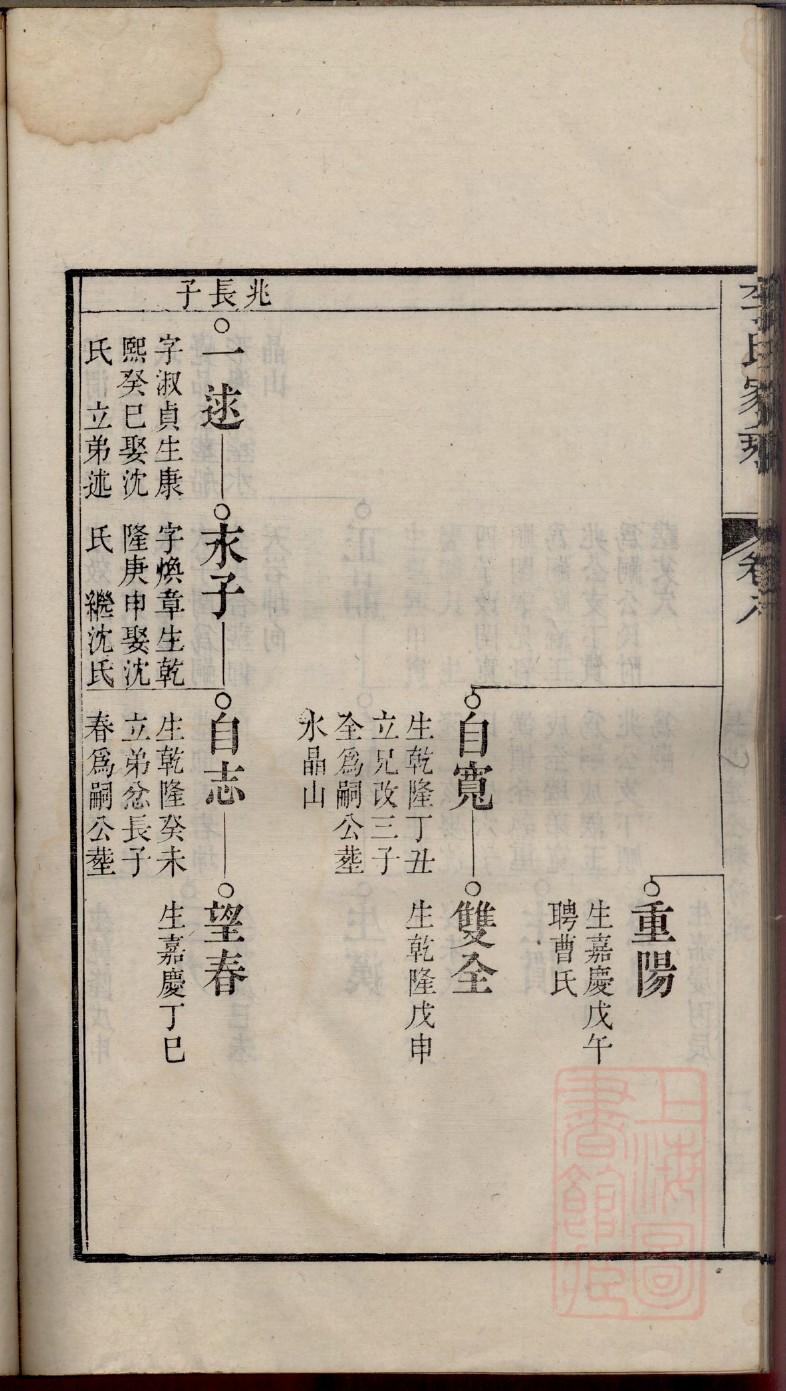 李氏家乘
卷六
重陽
生嘉慶戊午
聘曹氏
自寬
生乾隆丁丑
立兄改三子
全為嗣公塟
氷晶山
雙全
生乾隆戊申
兆長子
一逑
字淑貞生康
熙癸巳娶沈
氏 立弟述
末子
字煥章生乾
隆庚申娶沈
氏 繼沈氏
自志
生乾隆癸未
立弟忿長子
春為嗣公塟
望春
生嘉慶丁巳
上海圖
書館藏